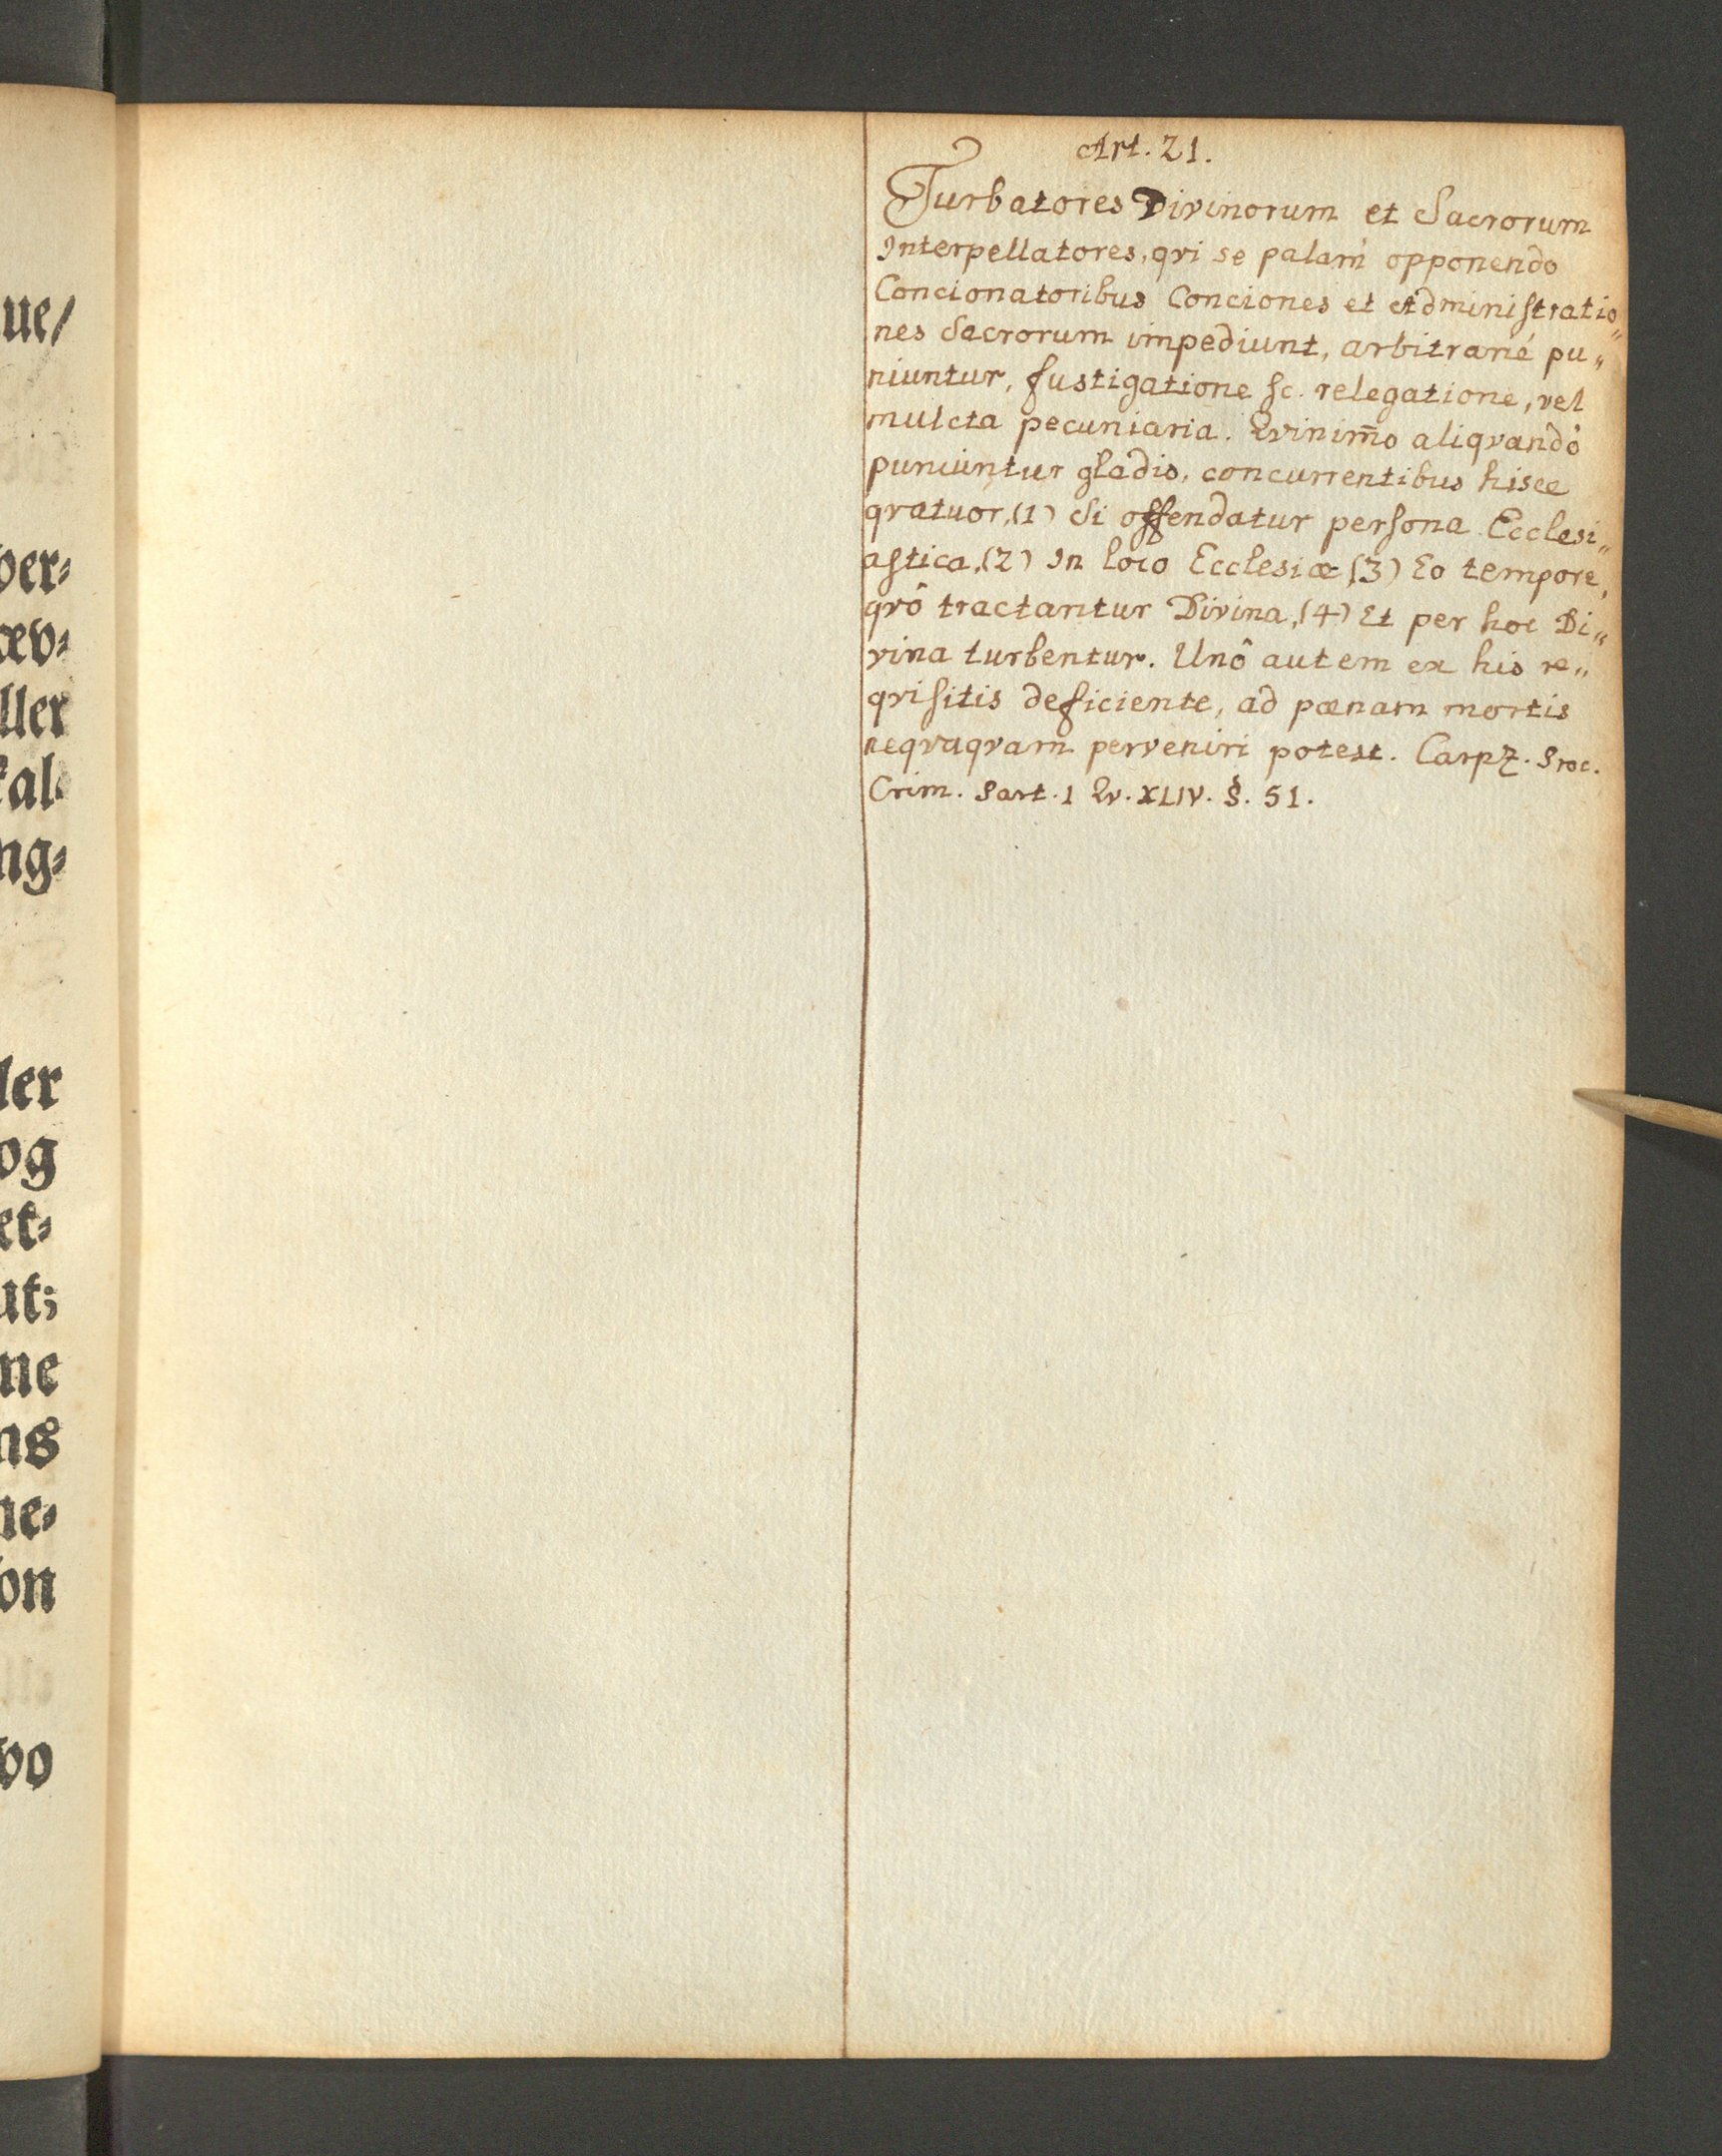 ue/
ver-
ræv-
ller
kal-
ng-
ler
og
et-
ut;
ne
ns
ne-
on
vo
Art. 21.
Turbatores Divinorum et Sacrorum
Interpellatores, qvi se palam opponendo
Concionatoribus Conciones et Administratio„
nes Sacrorum impediunt, arbitrarié pu„
niuntur, fustigatione sc. relegatione, vel
mulcta pecuniaria. Qvinim̄o aliqvandò
puniuntur gladio, concurrentibus hisce
qvatuor, (1) Si offendatur persona Ecclesi„
astica, (2) In loco Ecclesiæ (3) Eo tempore,
qvô tractantur Divina, (4) Et per hoc Di„
vina turbentur. Unô autem ex his re„
qvisitis deficiente, ad pœnam mortis
neqvaqvam perveniri potest. Carpz. Proc.
Crim. Part. 1 Qv. XLIV. §. 51.